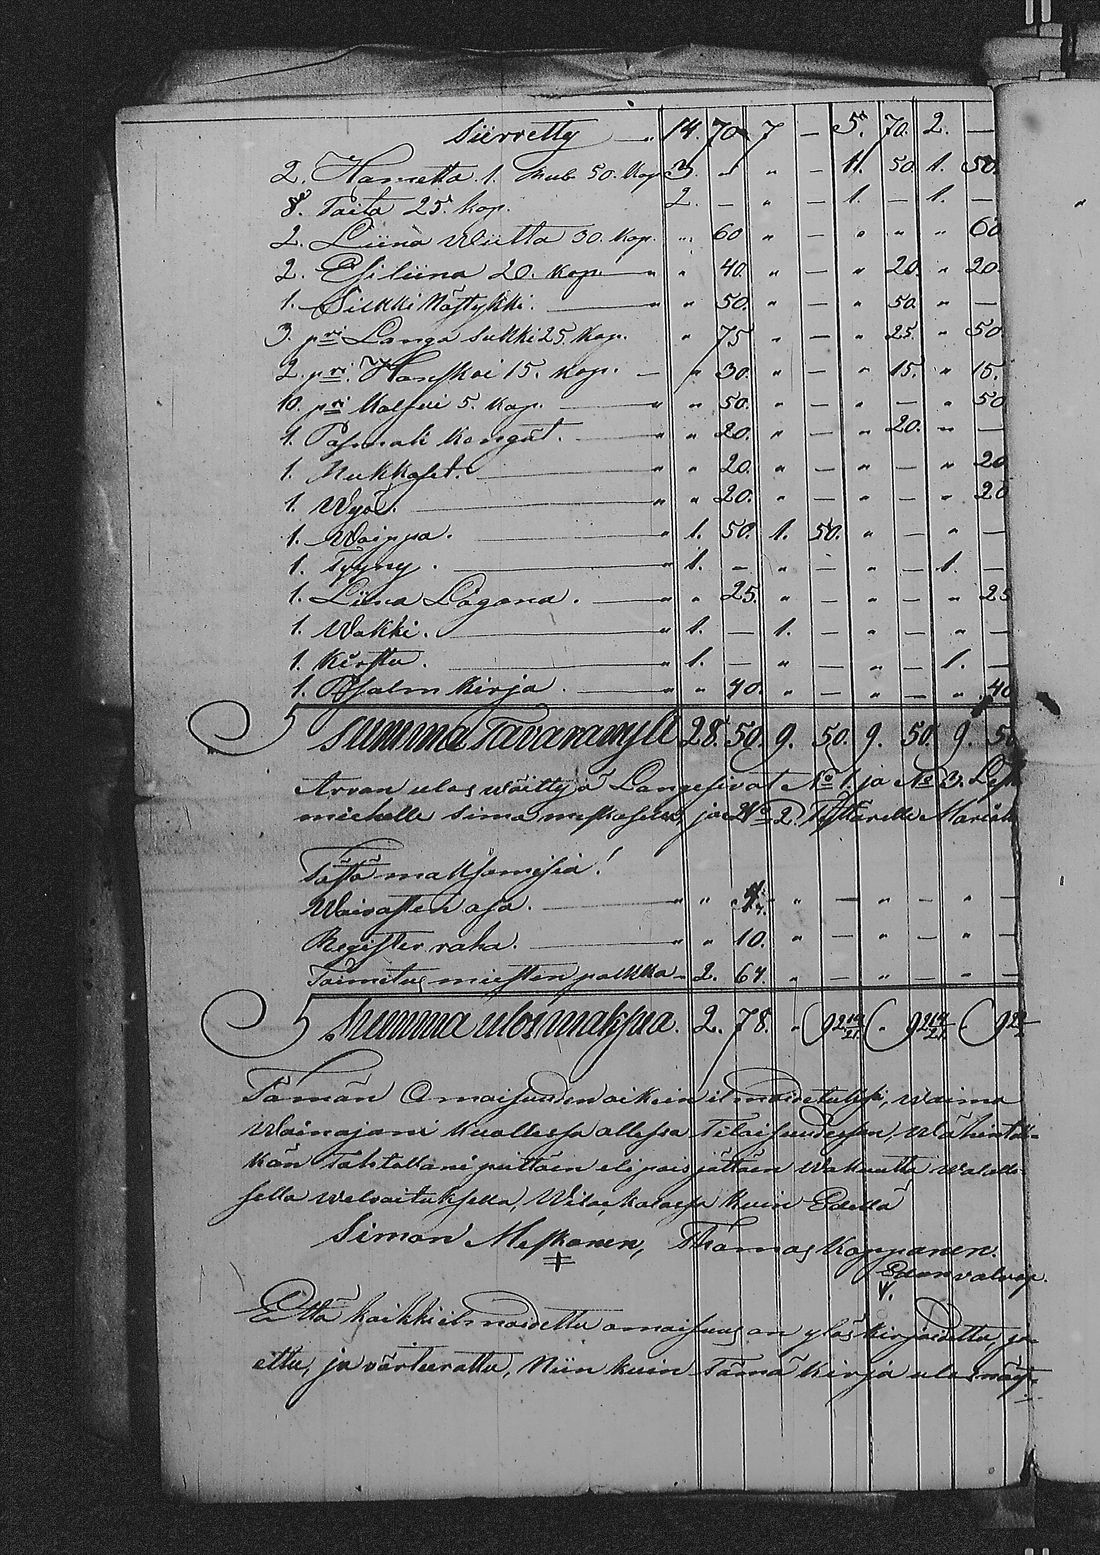 Siirretty — „ 14. 70. 7 — 5. 70. 2. —
2. Hametta 1. Rub. 50. Kop. 3. „ „ — 1. 50. 1. 50.
8. Paita 25. Kop. 2. — „ — 1. — 1. —
2. Liina 30. Kop. „ 60 „ — „ „ „ 60
2. Esiliina 20. Kop. — „ „ 40. „ — „ 20. „ 20.
1. Silkki — „ „ 50. „ — „ 50. „ —
3. pri Langa Sukki 25. Kop. „ 75 „ — „ 25. „ 50
2. pri. Hanskoi 15. Kop. — „ 30. „ — „ 15. „ 15.
10. pri 5. Kop. — „ „ 50. „ — „ — „ 50
1. kengät. — „ „ 20. „ — „ 20. „ —
1. — „ „ 20. „ — „ — „ 20
1. Wyö. — „ „ 20. „ — „ — „ 20
1. Waippa. — „ 1. 50. 1. 50. „ — „ —
1. Tyyny. — „ 1. — „ — „ — 1. —
1. Liina Lagana. — „ „ 25. „ — „ — „ 25
1. Wakki. — „ 1. — 1. — „ — „ —
1. Kirstu. — „ 1. — „ — „ — 1. —
1. Psalm Kirja. — „ „ 40. „ — „ — „ 40
Summa Tavaramyll 28. 50. 9. 50. 9. 50. 9. 50
Arvan ulos wäittyä Langesivat No 1. ja No 3.
miehelle Simo Meskaselle, ja No 2. Tyttärelle
Tästä maksamisia!
Waivasten osa. — „ „ 4. „ — „ — „ —
Register raha. — „ „ 10. „ — „ — „ —
Toimitus miesten palkka — 2. 64. „ — „ — „ —
Summa ulosmaksua. 2. 78. „
Tämän Omaisuuden oikein ilmoitetuksi, waimo
Wainajani kuollessa ollessa Tilaisuudessan, Wähintä-
kän Tahtollani piittäen eli pois jättäen Wakuutta walolli-
sella welvoituksella, kuin Edellä
Simon Meskanen, Thomas Kopponen.
Edesvalvoja.
Että kaikki ilmoitettu omaisuus on yläskirjoitettu, ja-
ettu, ja värteerattu, Niin kuin Tämä kirja ulosnäyt-